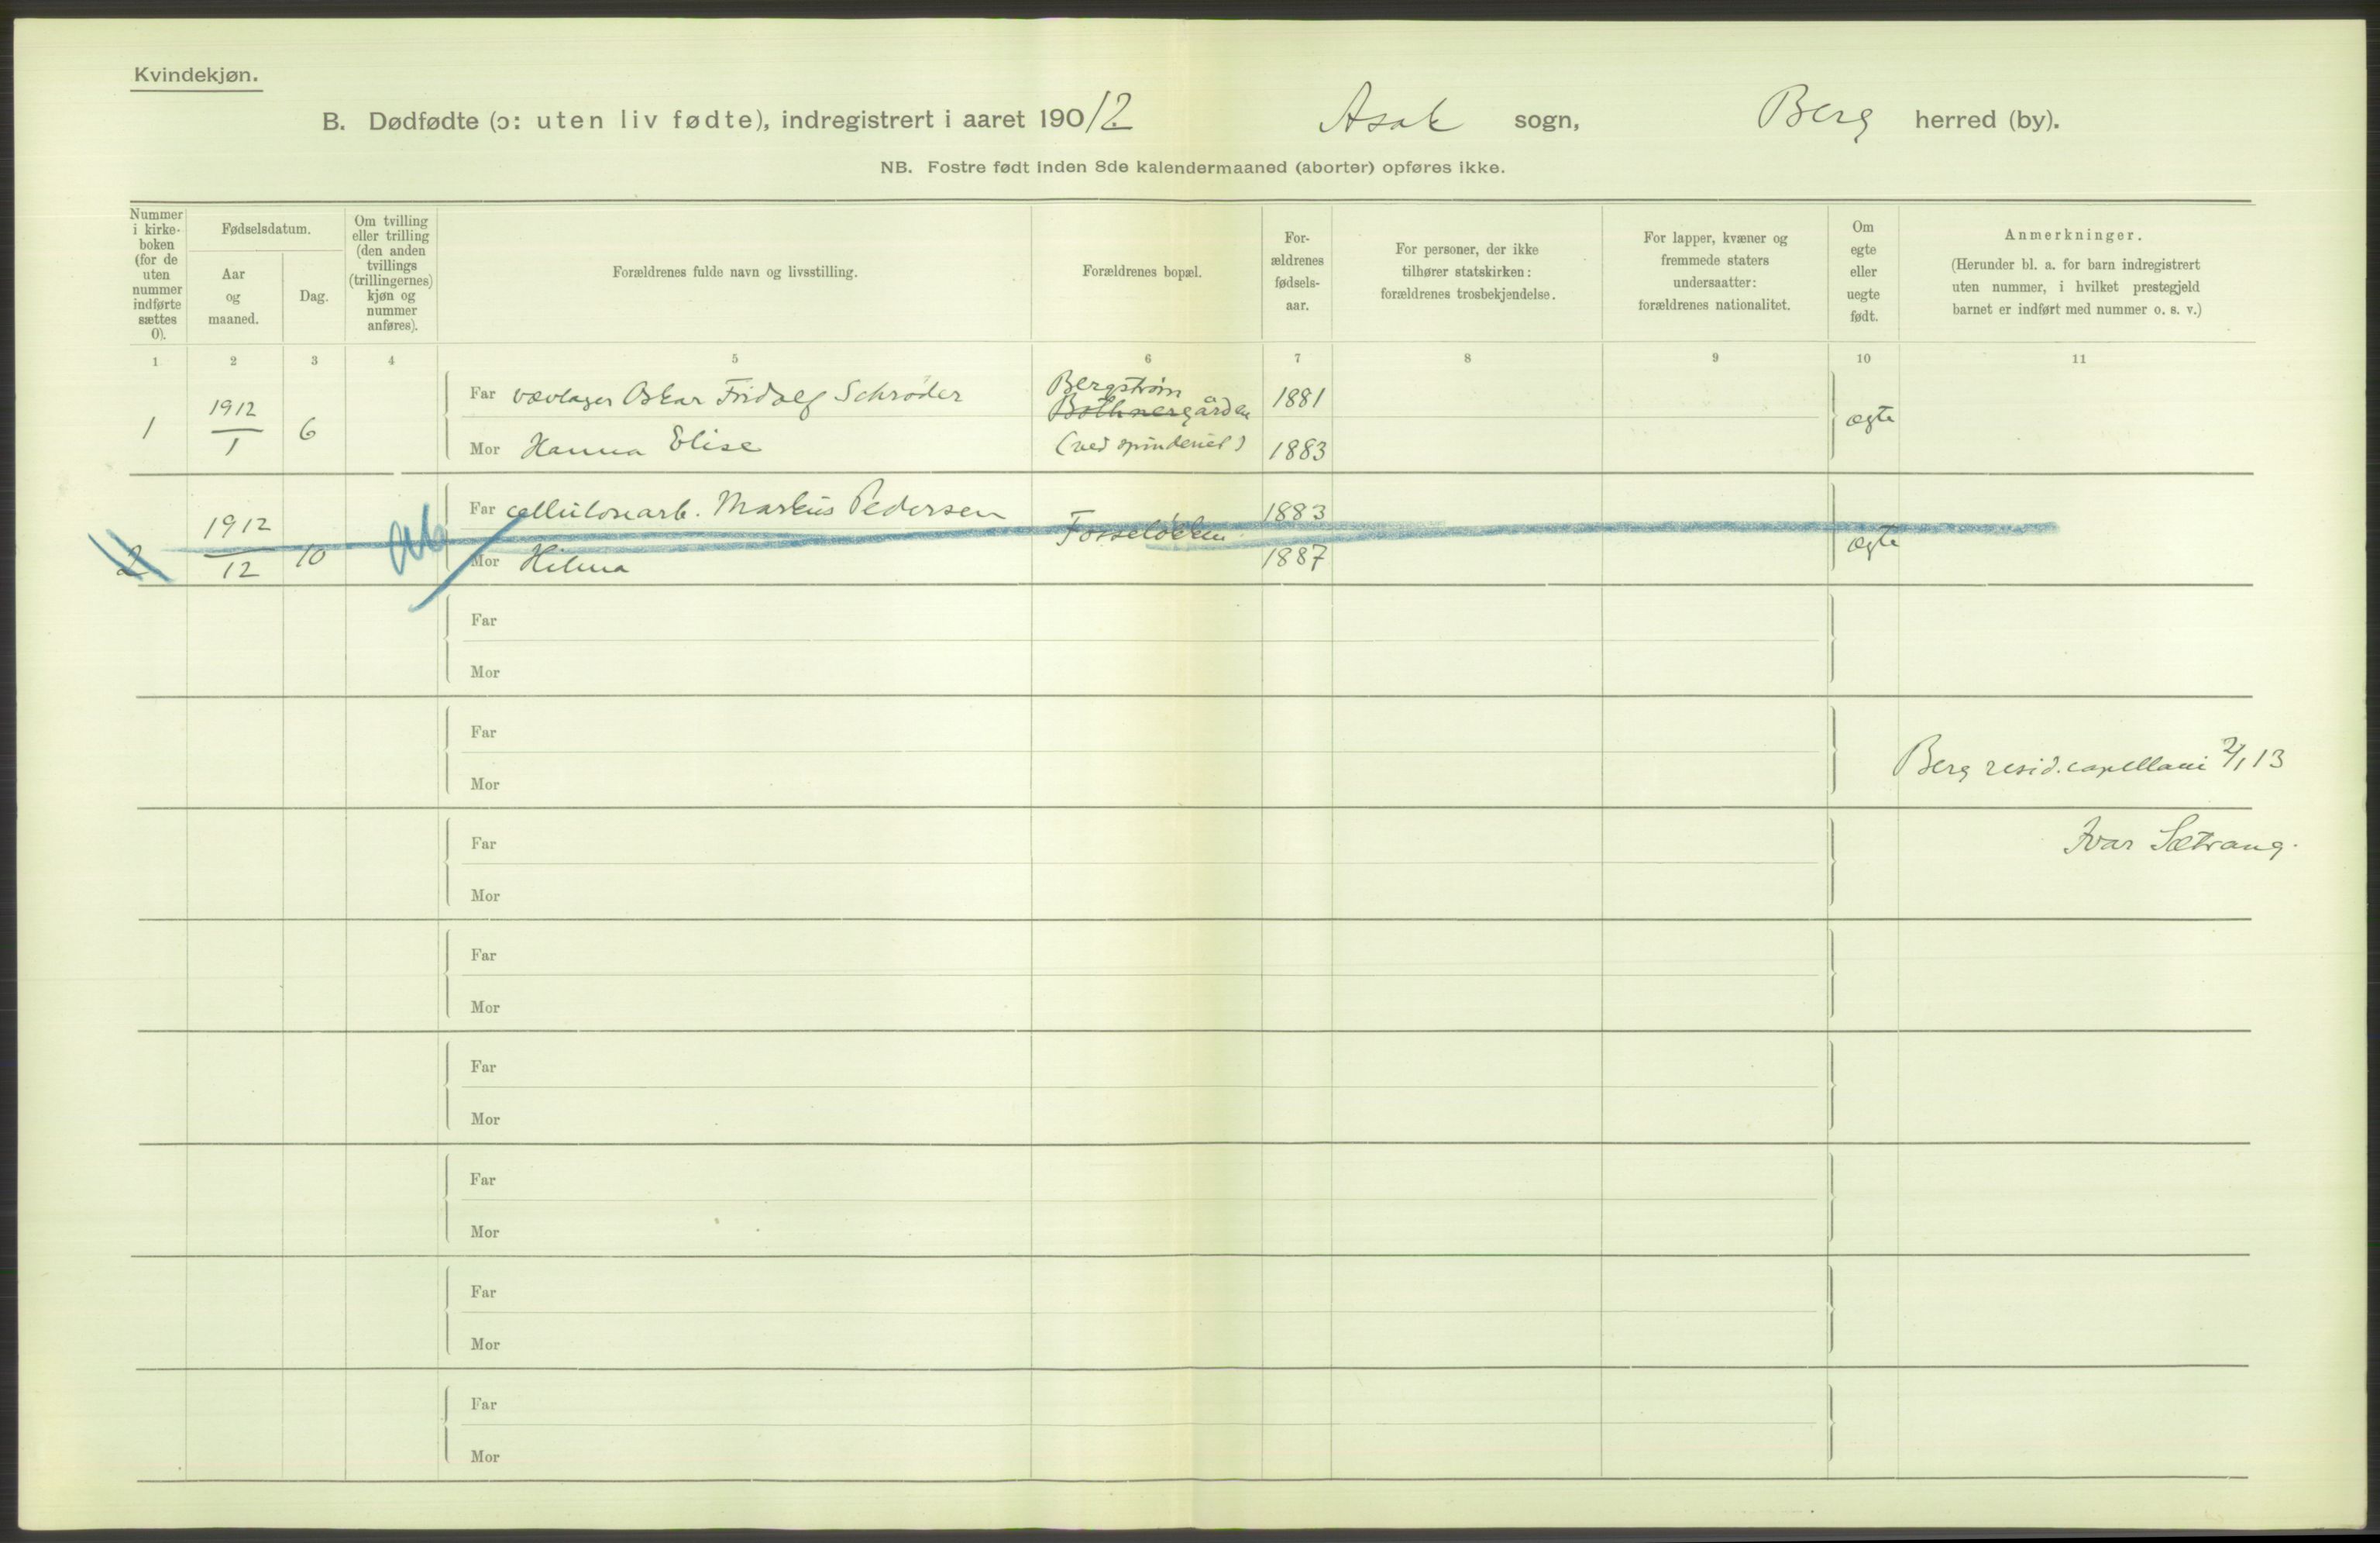 Kvindekjøn.
B. Dødfødte (ɔ: uten liv fødte), indregistrert i aaret 190/12 Asak sogn, Berg herred (by).
NB. Fostre født inden 8de kalendermaaned (aborter) opføres ikke.
Nummer i kirke-boken (for de uten nummer indførte sættes 0).
Fødselsdatum.
Aar og maaned.
Dag.
Om tvilling eller trilling (den anden tvillings (trillingernes) kjøn og nummer anføres).
Forældrenes fulde navn og livsstilling.
Forældrenes bopæl.
For-ældrenes fødsels-aar.
For personer, der ikke tilhører statskirken: forældrenes trosbekjendelse.
For lapper, kvæner og fremmede staters undersaatter: forældrenes nationalitet.
Om egte eller uegte født.
Anmerkninger.
(Herunder bl. a. for barn indregistrert uten nummer, i hvilket prestegjeld barnet er indført med nummer o. s. v.)
1 2 3 4 5 6 7 8 9 10 11
1 1912/1 6 Far Oskar Fridolf Schrøder Bergstrøm Bothnergården 1881 ægte
Mor Hanna Elise (ved spinderiet) 1883
2 1912/12 10 ab Far cellulosearb. Markus Pedersen Fosseløkken 1883 ægte
Mor Hilma 1887
Far
Mor
Far
Mor
Berg resid. capellani 2/1 13
Far
Ivar Sætrang.
Mor
Far
Mor
Far
Mor
Far
Mor
Far
Mor
Far
Mor